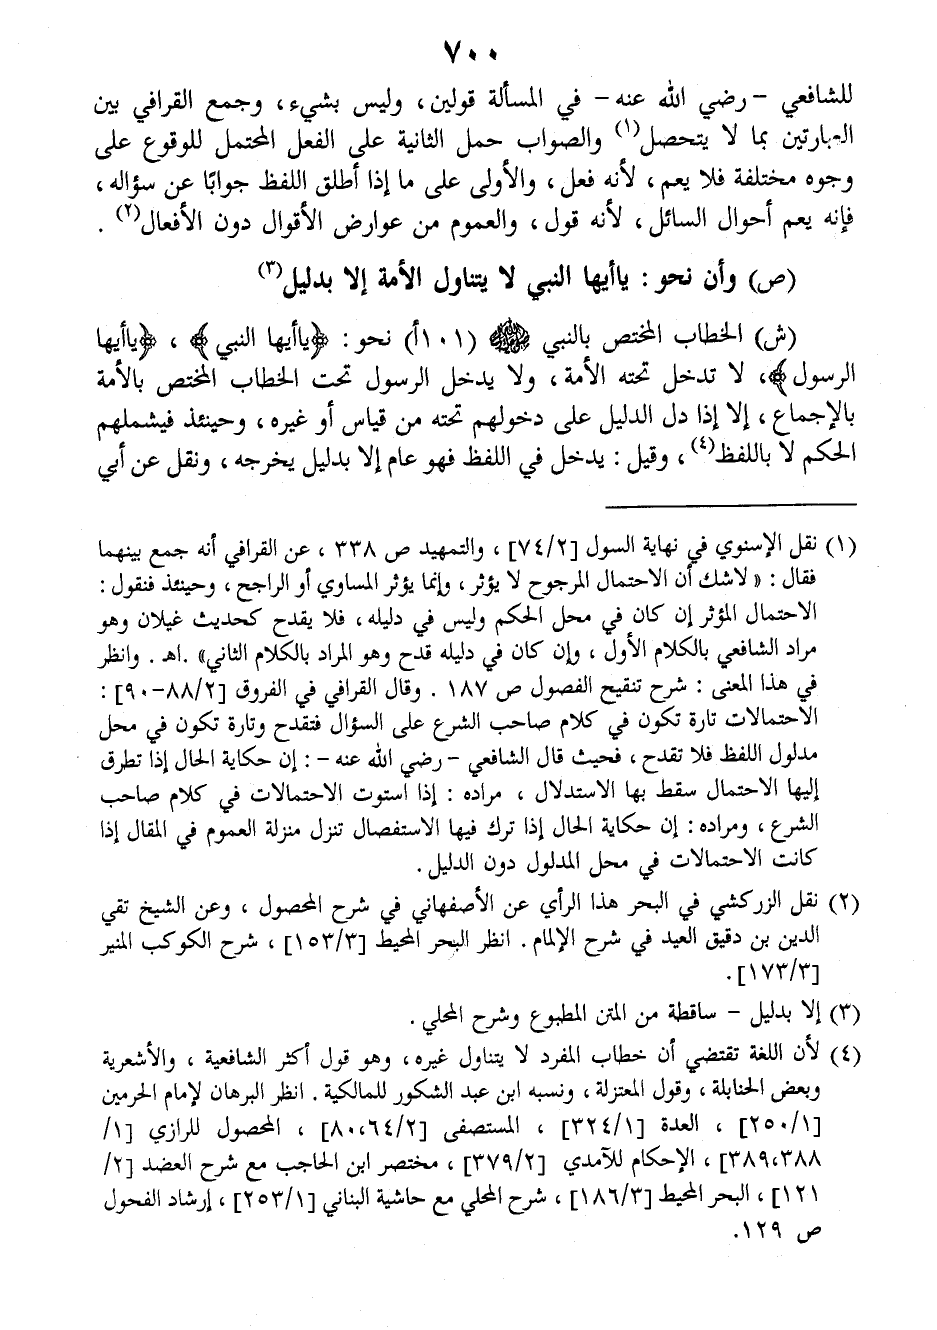 ٧٠٠
للشافعي - رضي الله عنه - في المسألة قولين، وليس بشيء، وجمع القرافي بين
العبارتين بما لا يتحصل(١) والصواب حمل الثانية على الفعل المحتمل للوقوع على
وجوه مختلفة فلا يعم، لأنه فعل، والأولى على ما إذا أطلق اللفظ جوابًا عن سؤاله،
فإنه يعم أحوال السائل، لأنه قول، والعموم من عوارض الأقوال دون الأفعال(٢) .
(ص) وأن نحو : ياأيها النبي لا يتناول الأمة إلا بدليل(٣)
(ش) الخطاب المختص بالنبي ﷺ (١٠١أ) نحو: ﴿ياأيها النبي﴾ ، ﴿ياأيها
الرسول﴾، لا تدخل تحته الأمة، ولا يدخل الرسول تحت الخطاب المختص بالأمة
بالإجماع، إلا إذا دل الدليل على دخولهم تحته من قياس أو غيره، وحينئذ فيشملهم
الحكم لا باللفظ(٤)، وقيل: يدخل في اللفظ فهو عام إلا بدليل يخرجه، ونقل عن أبي
(١) نقل الإسنوي في نهاية السول [٧٤/٢]، والتمهيد ص ٣٣٨، عن القرافي أنه جمع بينهما
فقال: «لاشك أن الاحتمال المرجوح لا يؤثر، وإنما يؤثر المساوي أو الراجح، وحينئذ فنقول:
الاحتمال المؤثر إن كان في محل الحكم وليس في دليله، فلا يقدح كحديث غيلان وهو
مراد الشافعي بالكلام الأول، وإن كان في دليله قدح وهو المراد بالكلام الثاني» .اهـ . وانظر
في هذا المعنى: شرح تنقيح الفصول ص ١٨٧ . وقال القرافي في الفروق [٨٨/٢-٩٠]:
الاحتمالات تارة تكون في كلام صاحب الشرع على السؤال فتقدح وتارة تكون في محل
مدلول اللفظ فلا تقدح، فحيث قال الشافعي - رضي الله عنه -: إن حكاية الحال إذا تطرق
إليها الاحتمال سقط بها الاستدلال، مراده: إذا استوت الاحتمالات في كلام صاحب
الشرع، ومراده: إن حكاية الحال إذا ترك فيها الاستفصال تنزل منزلة العموم في المقال إذا
كانت الاحتمالات في محل المدلول دون الدليل .
(٢) نقل الزركشي في البحر هذا الرأي عن الأصفهاني في شرح المحصول، وعن الشيخ تقي
الدين بن دقيق العيد في شرح الإلمام. انظر البحر المحيط [١٥٣/٣]، شرح الكوكب المنير
[١٧٣/٣].
(٣) إلا بدليل - ساقطة من المتن المطبوع وشرح المحلي .
(٤) لأن اللغة تقتضي أن خطاب المفرد لا يتناول غيره، وهو قول أكثر الشافعية، والأشعرية
وبعض الحنابلة، وقول المعتزلة، ونسبه ابن عبد الشكور للمالكية . انظر البرهان لإمام الحرمين
[٢٥٠/١] ، العدة [٣٢٤/١] ، المستصفى [٨٠،٦٤/٢] ، المحصول للرازي [١/
٣٨٩،٣٨٨]، الإحكام للآمدي [٣٧٩/٢]، مختصر ابن الحاجب مع شرح العضد [٢/
١٢١]، البحر المحيط [١٨٦/٣]، شرح المحلي مع حاشية البناني [٢٥٣/١]، إرشاد الفحول
ص ١٢٩.